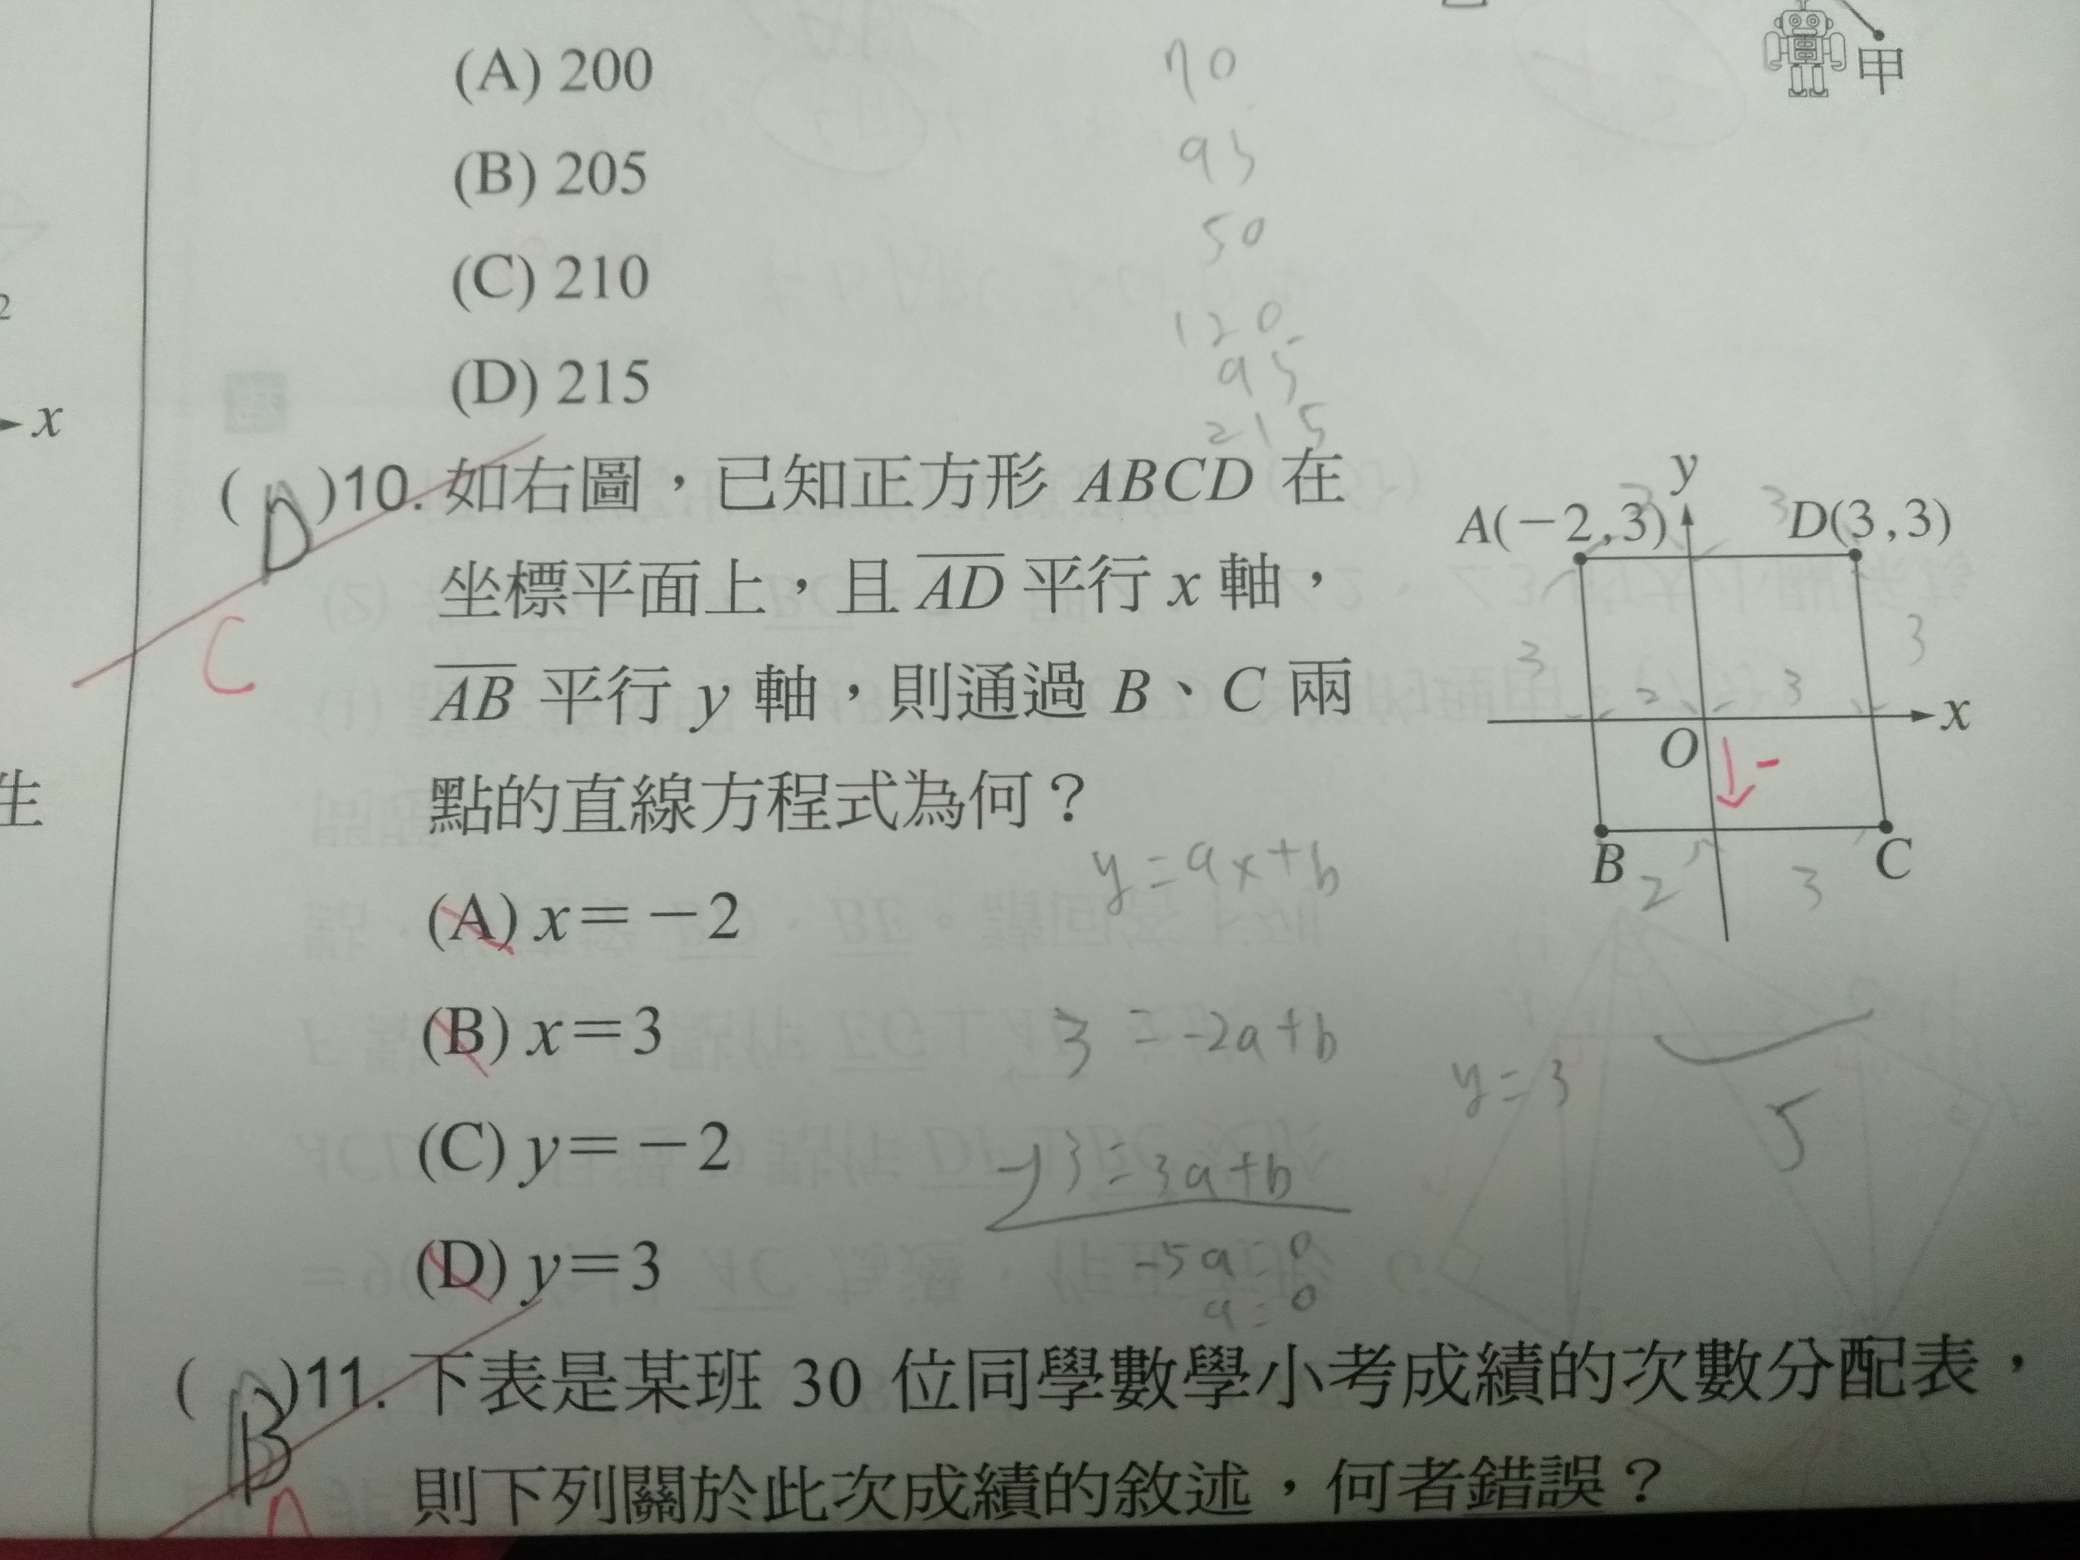 甲
(A) 200
70
(B) 205
95
50
(C) 210
120
(D) 215
95
215
x
( D )10. 如右圖，已知正方形 ABCD 在
坐標平面上，且 AD 平行 x 軸，
AB 平行 y 軸，則通過 B、C 兩
點的直線方程式為何？
C
y
3
3
A(−2,3)
D(3,3)
3
3
2
3
x
O
-
B
C
2
3
y=ax+b
(A) x=−2
(B) x=3
3=-2a+b
y=3
5
(C) y=−2
-) 3=3a+b
(D) y=3
-5a=0
a=0
( B )11. 下表是某班 30 位同學數學小考成績的次數分配表，
則下列關於此次成績的敘述，何者錯誤？
生
2